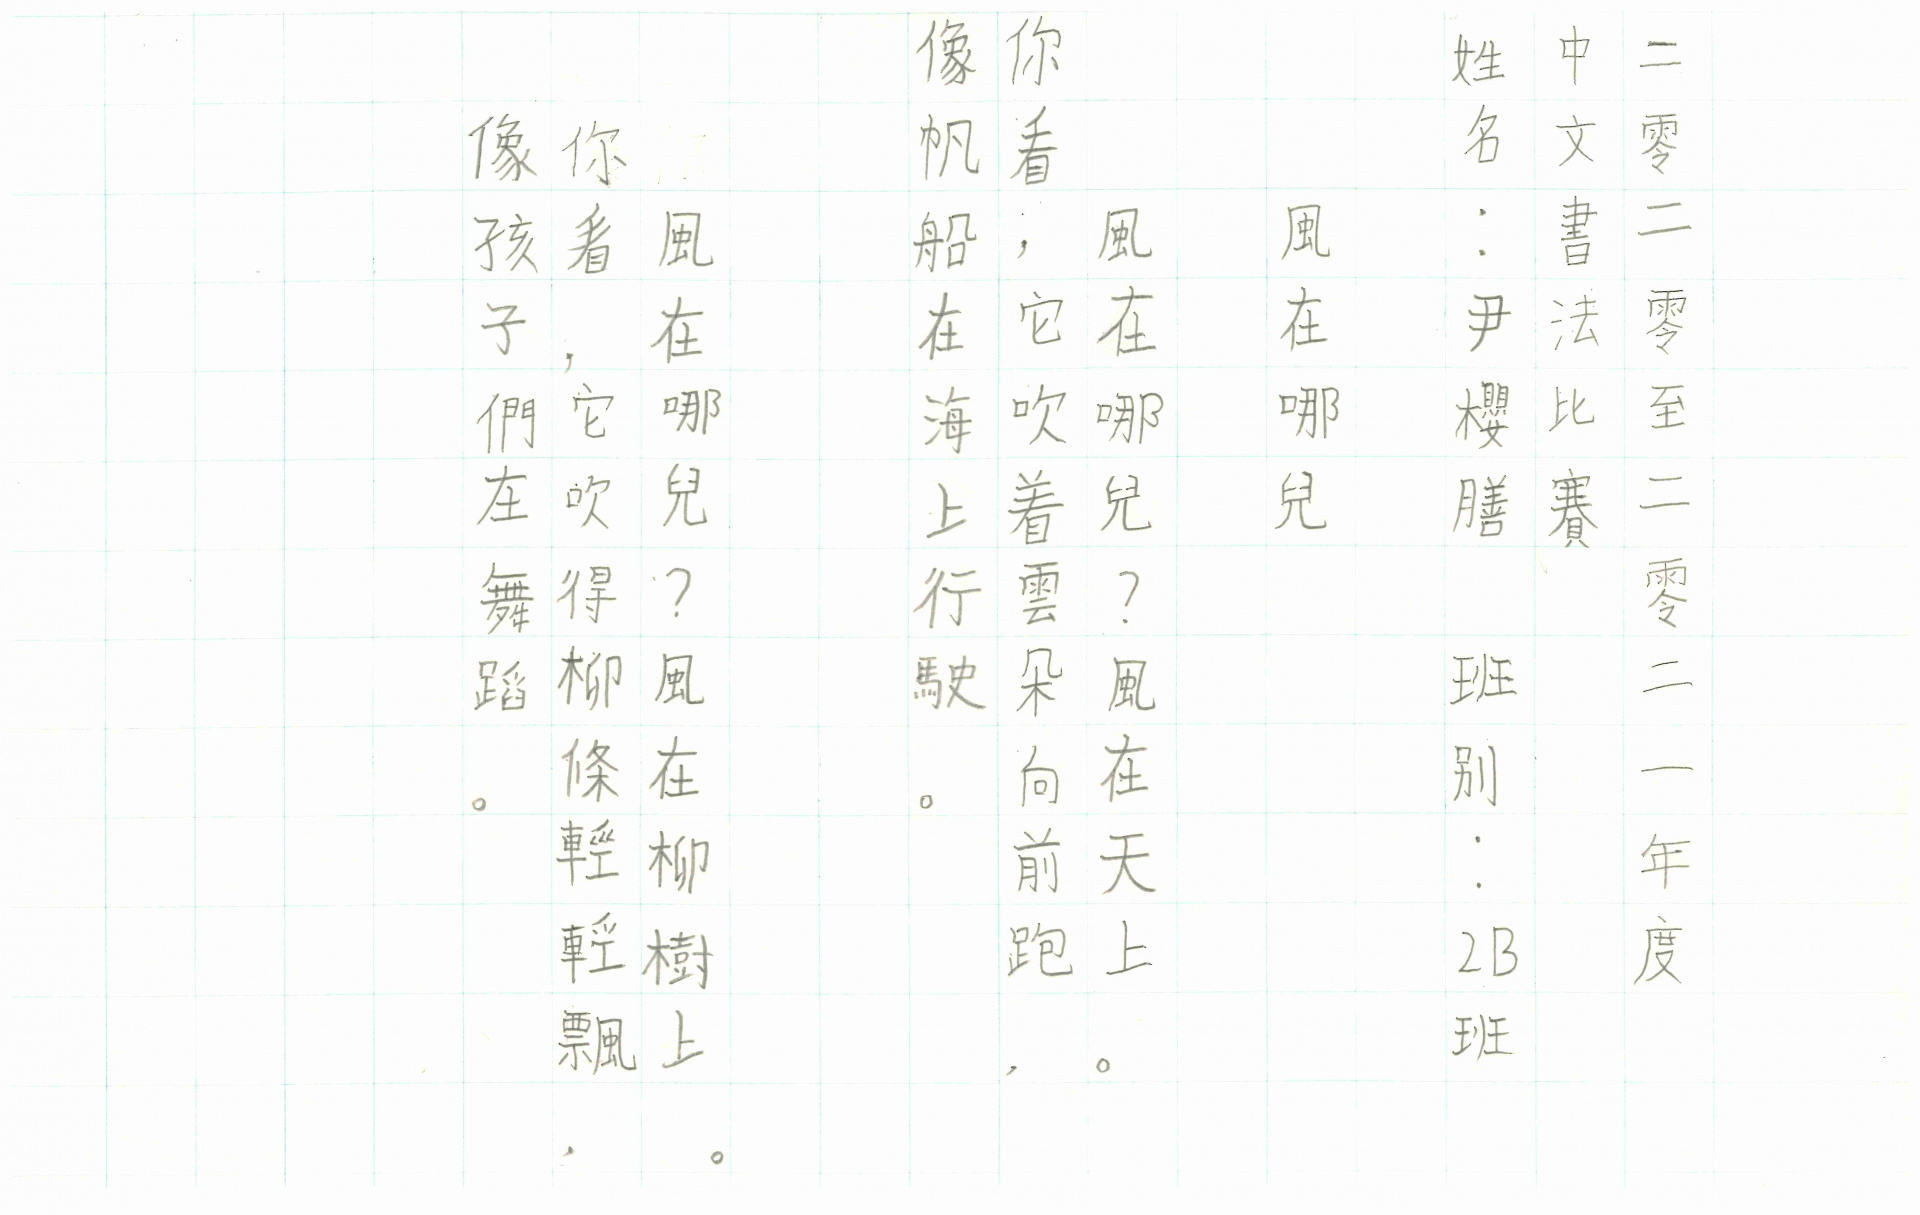 二零二零至二零二一年度
中文書法比賽
姓名：尹櫻膳 班別：2B班
風在哪兒
風在哪兒？風在天上。
你看，它吹着雲朵向前跑，
像帆船在海上行駛。
風在哪兒？風在柳樹上。
你看，它吹得柳條輕輕飄，
像孩子們在舞蹈。